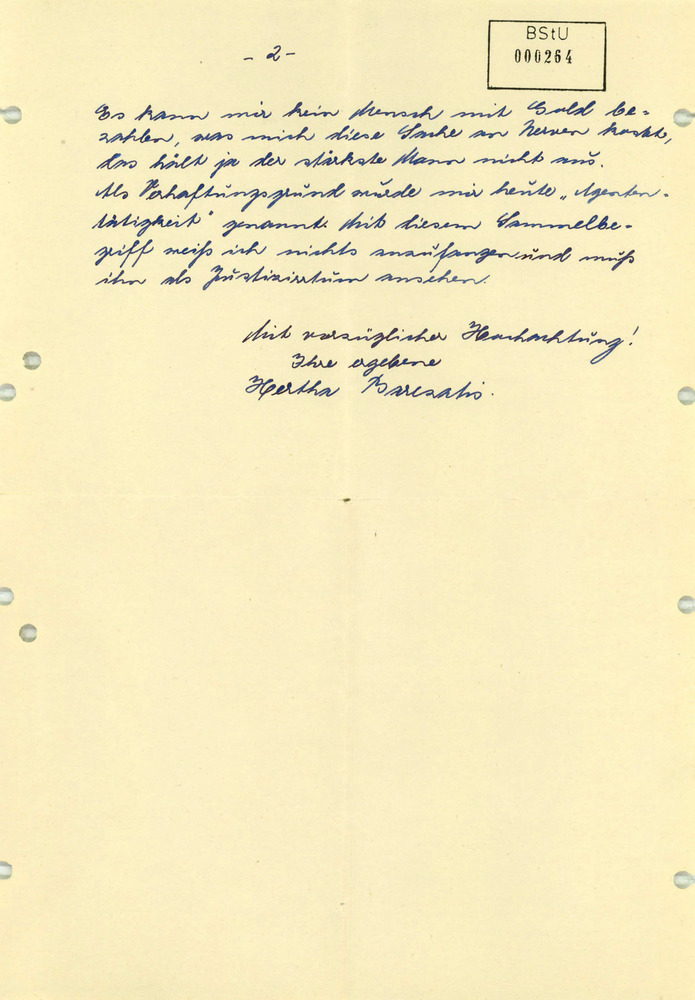 BStU
000264
- 2 -
Es kann mir kein Mensch mit Gold be=
zahlen, was mich diese Sache an Nerven kostet,
das hält ja der stärkste Mann nicht aus.
Als Verhaftungsgrund wurde mir heute „Agenten-
tätigkeit" genannt. Mit diesem Sammelbe-
griff weiß ich nichts anzufangen und muß
ihn als Justizirrtum ansehen.
Mit vorzüglicher Hochachtung!
Ihre ergebene
Hertha Barczatis.